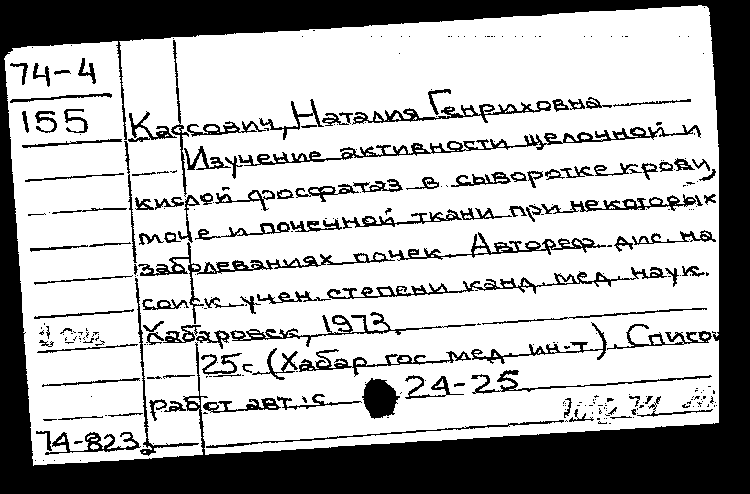 74-4
155
Кассович, Наталия Генриховна
Изучение активности щелочной и
кислой фосфатаз в сыворотке крови,
моче и почечной ткани при некоторых
заболеваниях почек. Автореф. дис. на
соиск. учен. степени канд. мед. наук.
Хабаровск, 1973.
25 с. (Хабар. гос. мед. ин-т). Список
работ авт.: с. 24-25
74-823